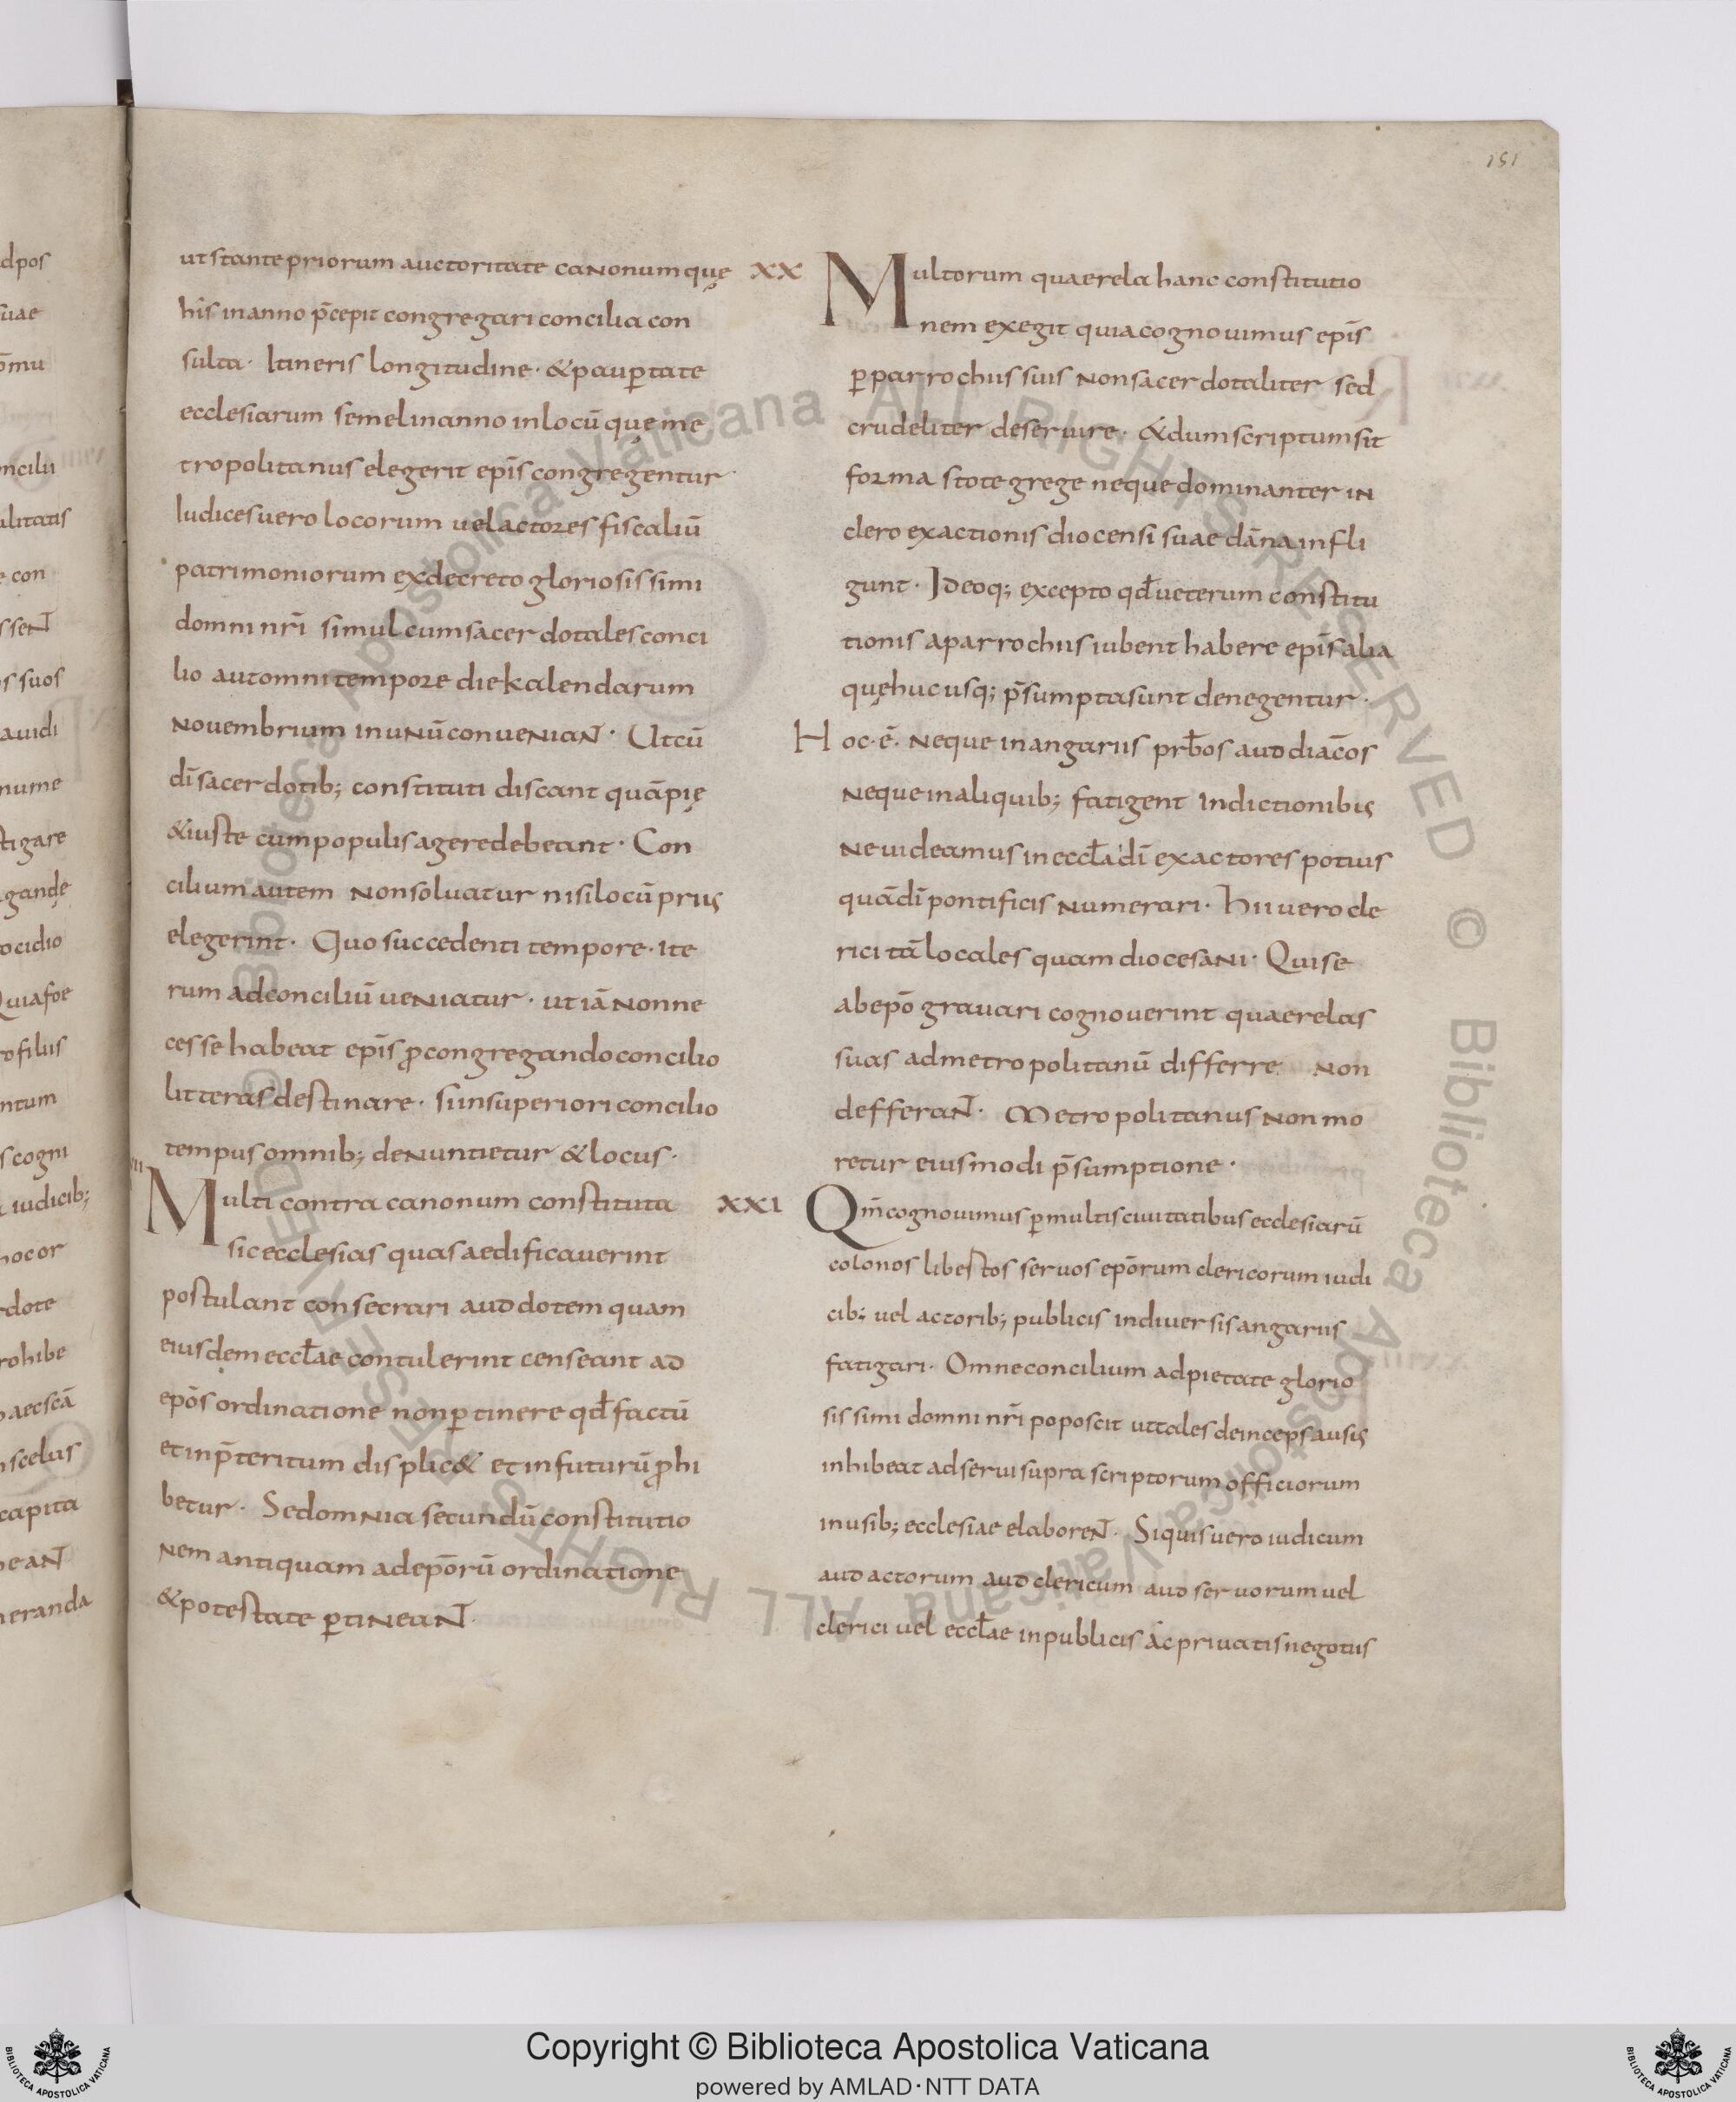 151
ut stante priorum auctoritate canonum quę
his in anno p̄cepit congregari concilia con
sulta· Itineris longitudine· &paup̱tate
ecclesiarum semel in anno in locū quę me
tropolitanus elegerit ep̄is congregentur·
Iudices uero locorum uel actores fiscaliū
patrimoniorum ex decreto gloriosissimi
domni nr̄i simul cum sacerdotales conci
lio automni tempore die kalendarum
Nouembrium in unū conueniaNT· Ut cū
dī sacerdotib; constituti discant quā pię
&iuste cum populis agere debeant· Con
cilium autem non soluatur nisi locū prius
elegerint· Quo succedenti tempore· ite
rum ad conciliū ueniatur· ut iā non ne
cesse habeat ep̄is ꝓ congregando concilio
litteras destinare· si in superiori concilio
tempus omnib; denuntietur &locus·
VII
Multi contra canonum constituta
sic ecclesias quas aedificauerint
postulant consecrari aud dotem quam
eiusdem eccł̄ae contulerint censeant ad
ep̄os ordinatione non p̱tinere qđ factū
et in p̄teritum displic& et in futurū ꝓhi
betur· Sed omnia secundū constitutio
nem antiquam ad ep̄orū ordinatione
&potestate p̱tineaNT·
XX
Multorum quaerela hanc constitutio
nem exegit quia cognouimus ep̄is
p̱ parrochiis suis non sacerdotaliter sed
crudeliter deseruire· &dum scriptum sit
forma stote grege neque dominanter in
clero exactionis diocensi suae dāna infli
gunt· Ideoq; excepto qđ ueterum constitu
tionis a parrochiis iubent habere ep̄is alia
quę huc usq; p̄sumpta sunt denegentur·
Hoc·ē· neque in angariis prb̄os aud diac̄os
neque in aliquib; fatigent Indictionibus
ne uideamus in eccł̄a dī exactores potius
quā dī pontificis numerari· Hii uero cle
rici tā locales quam diocesani· Qui se
ab ep̄o grauari cognouerint quaerelas
suas ad metropolitanū differre non
defferaNT· Metropolitanus non mo
retur eiusmodi p̄sumptione·
XXI
Qm̄ cognouimus p̱ multis ciuitatibus ecclesiarū
colonos libestos seruos ep̄orum clericorum iudi
cib; uel actorib; publicis in diuersis angariis
fatigari· Omne concilium ad pietate glorio
sissimi domni nr̄i poposcit ut tales deinceps ausus
inhibeat ad serui supra scriptorum officiorum
in usib; ecclesiae elaboreNT· Si quis uero iudicum
aud actorum aud clericum aud seruorum uel
clerici uel eccł̄ae in publicis ac priuatis negotiis
© Biblioteca Apostolica Vaticana ALL RIGHTS RESERVED
Copyright © Biblioteca Apostolica Vaticana
powered by AMLAD·NTT DATA
BIBLIOTECA APOSTOLICA VATICANA
BIBLIOTECA APOSTOLICA VATICANA